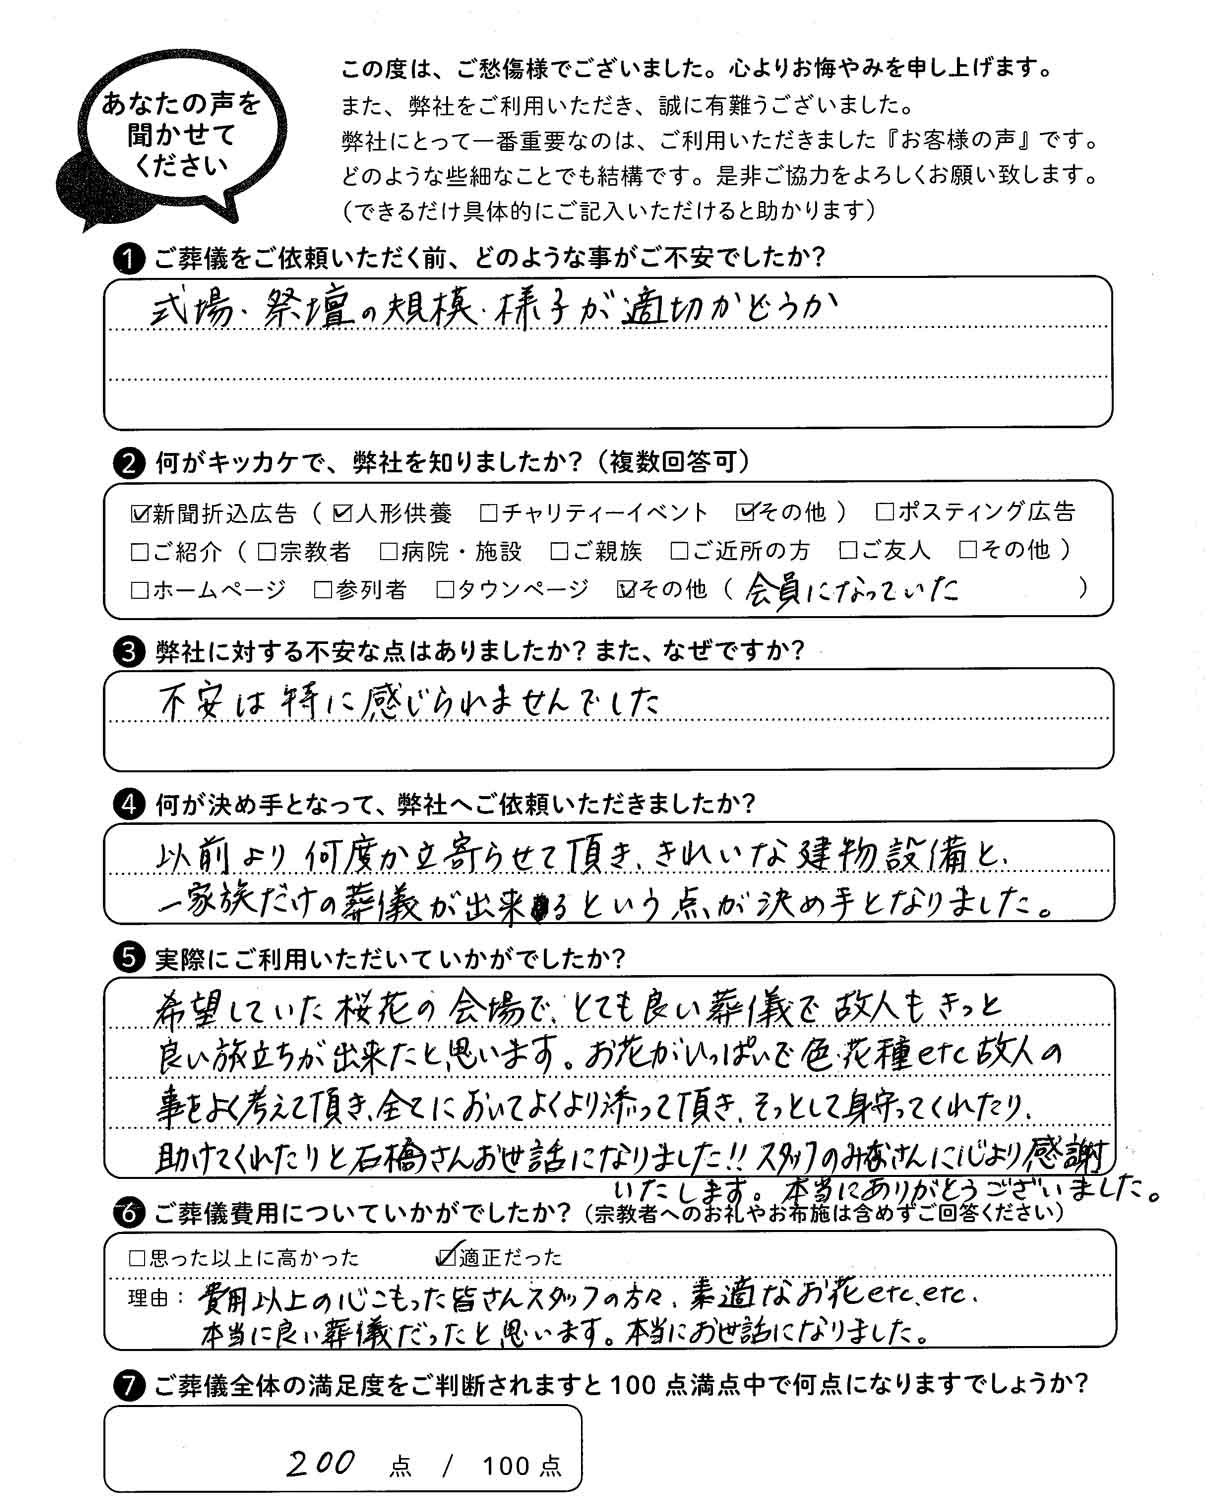 あなたの声を
聞かせて
ください
この度は、ご愁傷様でございました。心よりお悔やみを申し上げます。
また、弊社をご利用いただき、誠に有難うございました。
弊社にとって一番重要なのは、ご利用いただきました『お客様の声』です。
どのような些細なことでも結構です。是非ご協力をよろしくお願い致します。
（できるだけ具体的にご記入いただけると助かります）
❶ご葬儀をご依頼いただく前、どのような事がご不安でしたか？
式場・祭壇の規模・様子が適切かどうか
❷何がキッカケで、弊社を知りましたか？（複数回答可）
☑新聞折込広告（☑人形供養 □チャリティーイベント ☑その他） □ポスティング広告
□ご紹介（□宗教者 □病院・施設 □ご親族 □ご近所の方 □ご友人 □その他）
□ホームページ □参列者 □タウンページ ☑その他（会員になっていた）
❸弊社に対する不安な点はありましたか？また、なぜですか？
不安は特に感じられませんでした
❹何が決め手となって、弊社へご依頼いただきましたか？
以前より何度か立寄らせて頂き、きれいな建物設備と、
一家族だけの葬儀が出来るという点、が決め手となりました。
❺実際にご利用いただいていかがでしたか？
希望していた桜花の会場で、とても良い葬儀で故人もきっと
良い旅立ちが出来たと、思います。お花がいっぱいで色・花種etc故人の
事をよく考えて頂き、全てにおいてよくより添って頂き、そっとして見守ってくれたり、
助けてくれたりと石橋さんお世話になりました!!スタッフのみなさんに心より感謝
いたします。本当にありがとうございました。
❻ご葬儀費用についていかがでしたか？（宗教者へのお礼やお布施は含めずご回答ください）
□思った以上に高かった ☑適正だった
理由：費用以上の心こもった皆さんスタッフの方々、素適なお花etc、etc、
本当に良い葬儀だったと思います。本当にお世話になりました。
❼ご葬儀全体の満足度をご判断されますと100点満点中で何点になりますでしょうか？
200 点 / 100点